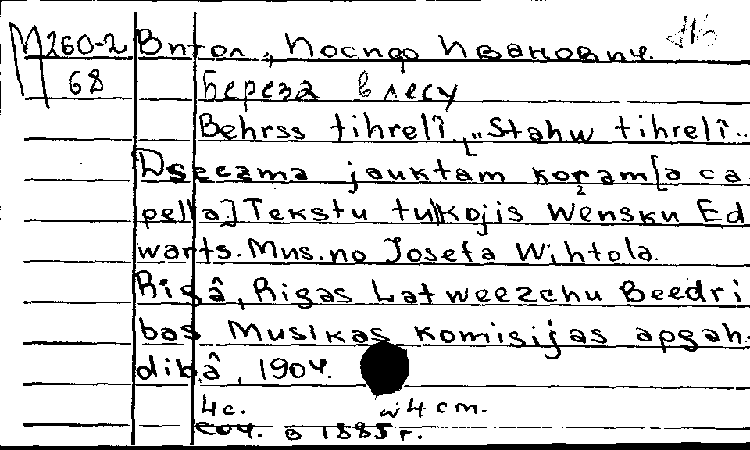 М260-2 Витол, Иосиф Иванович.
68 Береза в лесу
Behrss tihrelî „Stahw tihrelî..
Dseesma jauktam koram[a ca
pella] Tekstu tulkojis Wensku Ed
warts. Mus. no Josefa Wihtola.
Rigâ, Rigas Latweezchu Beedri
bas Musikas komisijas apgah-
dibâ, 1904.
4 с. 4 cm.
соч. в 1885 г.